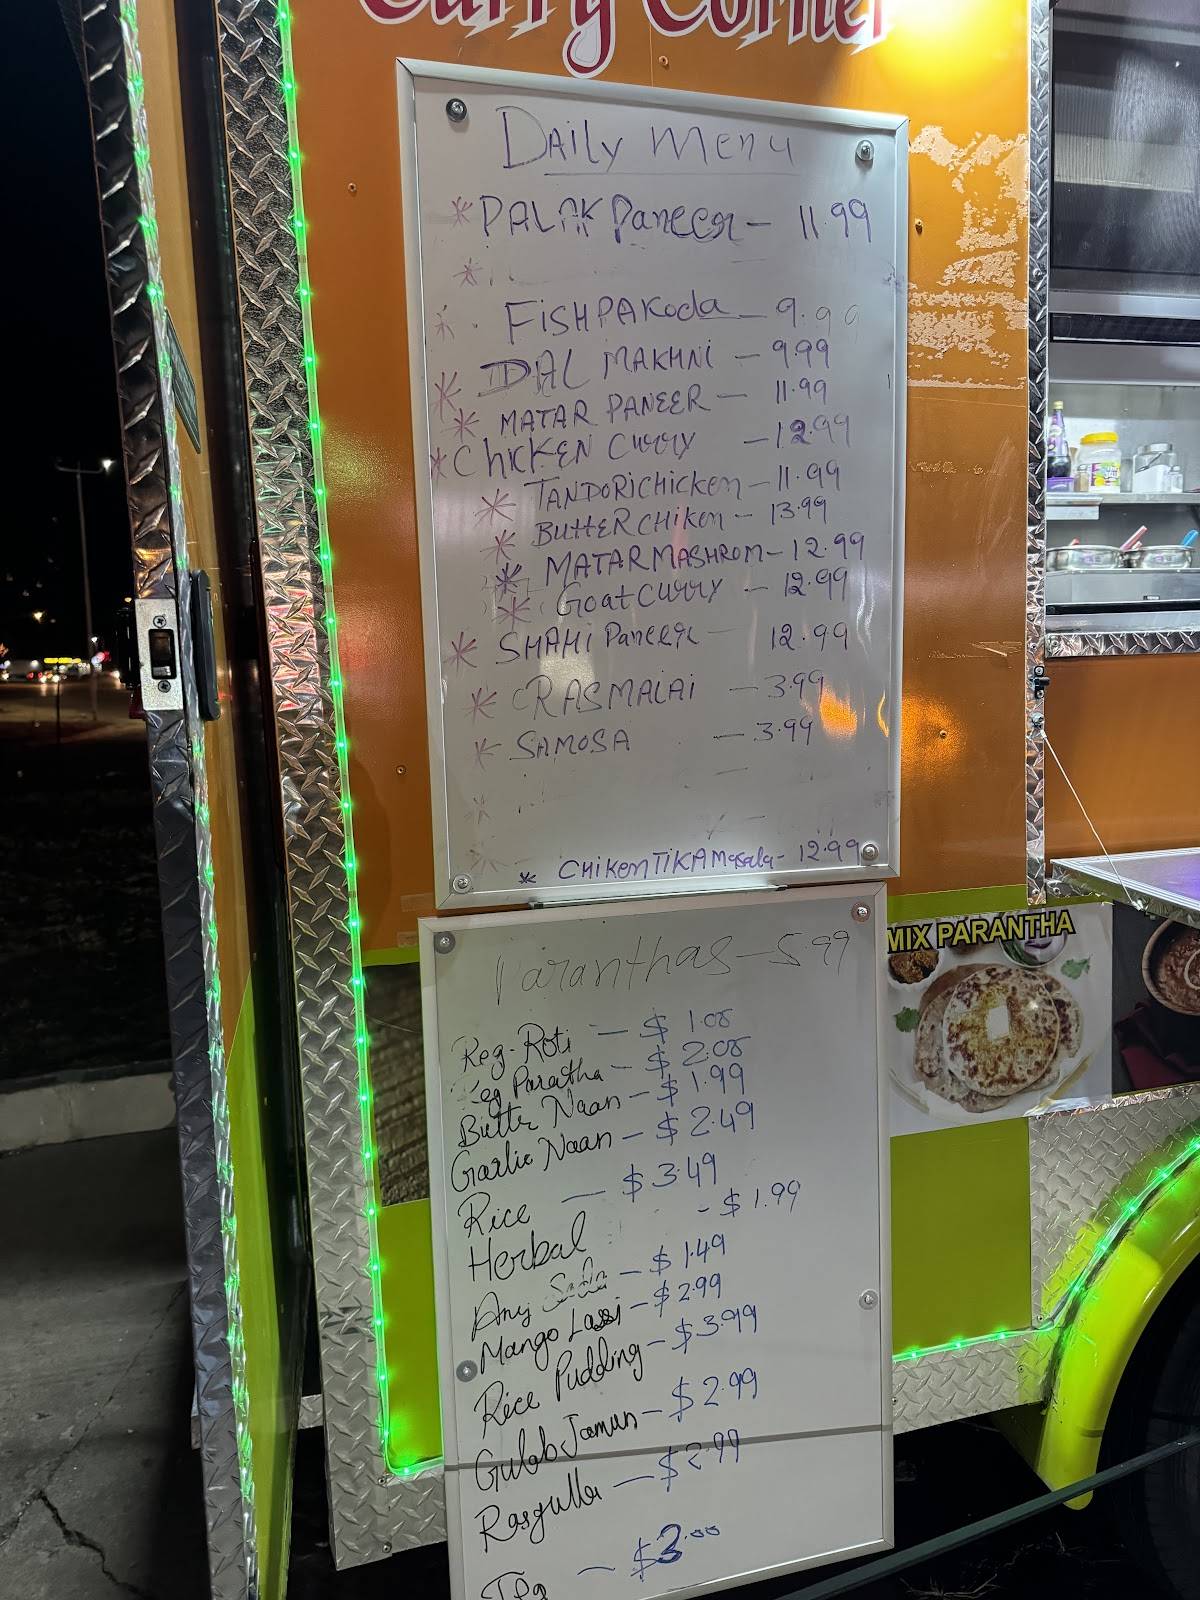 Curry Corner
Daily Menu
* PALAK Paneer - 11.99
FISH PAKoda - 9.99
* DAL MAKHNI - 9.99
* MATAR PANEER - 11.99
* ChICKEN Curry - 12.99
* TANDORI CHICKen - 11.99
* BUttER CHIKen - 13.99
* MATAR MASHROM - 12.99
* Goat Curry - 12.99
* SHAHI Paneer - 12.99
* RASMALAI - 3.99
* SAMOSA - 3.99
* CHIKen TIKA Masala - 12.99
Paranthas - 5.99
Reg. Roti - $ 1.08
Reg Paratha - $ 2.08
Butter Naan - $ 1.99
Garlic Naan - $ 2.49
Rice - $ 3.49
Herbal - $ 1.99
Any Soda - $ 1.49
Mango Lassi - $ 2.99
Rice Pudding - $ 3.99
Gulab Jamun - $ 2.99
Rasgulla - $ 2.99
- $ 3.00
MIX PARANTHA